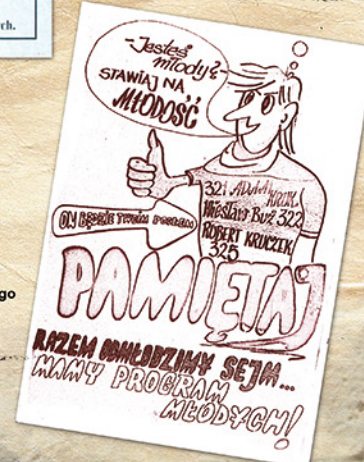 ch.
go
-Jesteś
młody?-
STAWIAJ NA
MŁODOŚĆ
321 ADAM KRUK
Wiesław Buż 322
ROBERT KRUCZEK
325
ON BĘDZIE TWOIM POSŁEM
PAMIĘTAJ
RAZEM ODMŁODZIMY SEJM...
MAMY PROGRAM
MŁODYCH!